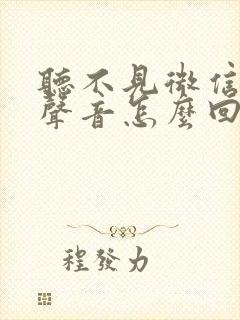 聽不見微信
聲音怎麼回
程發力